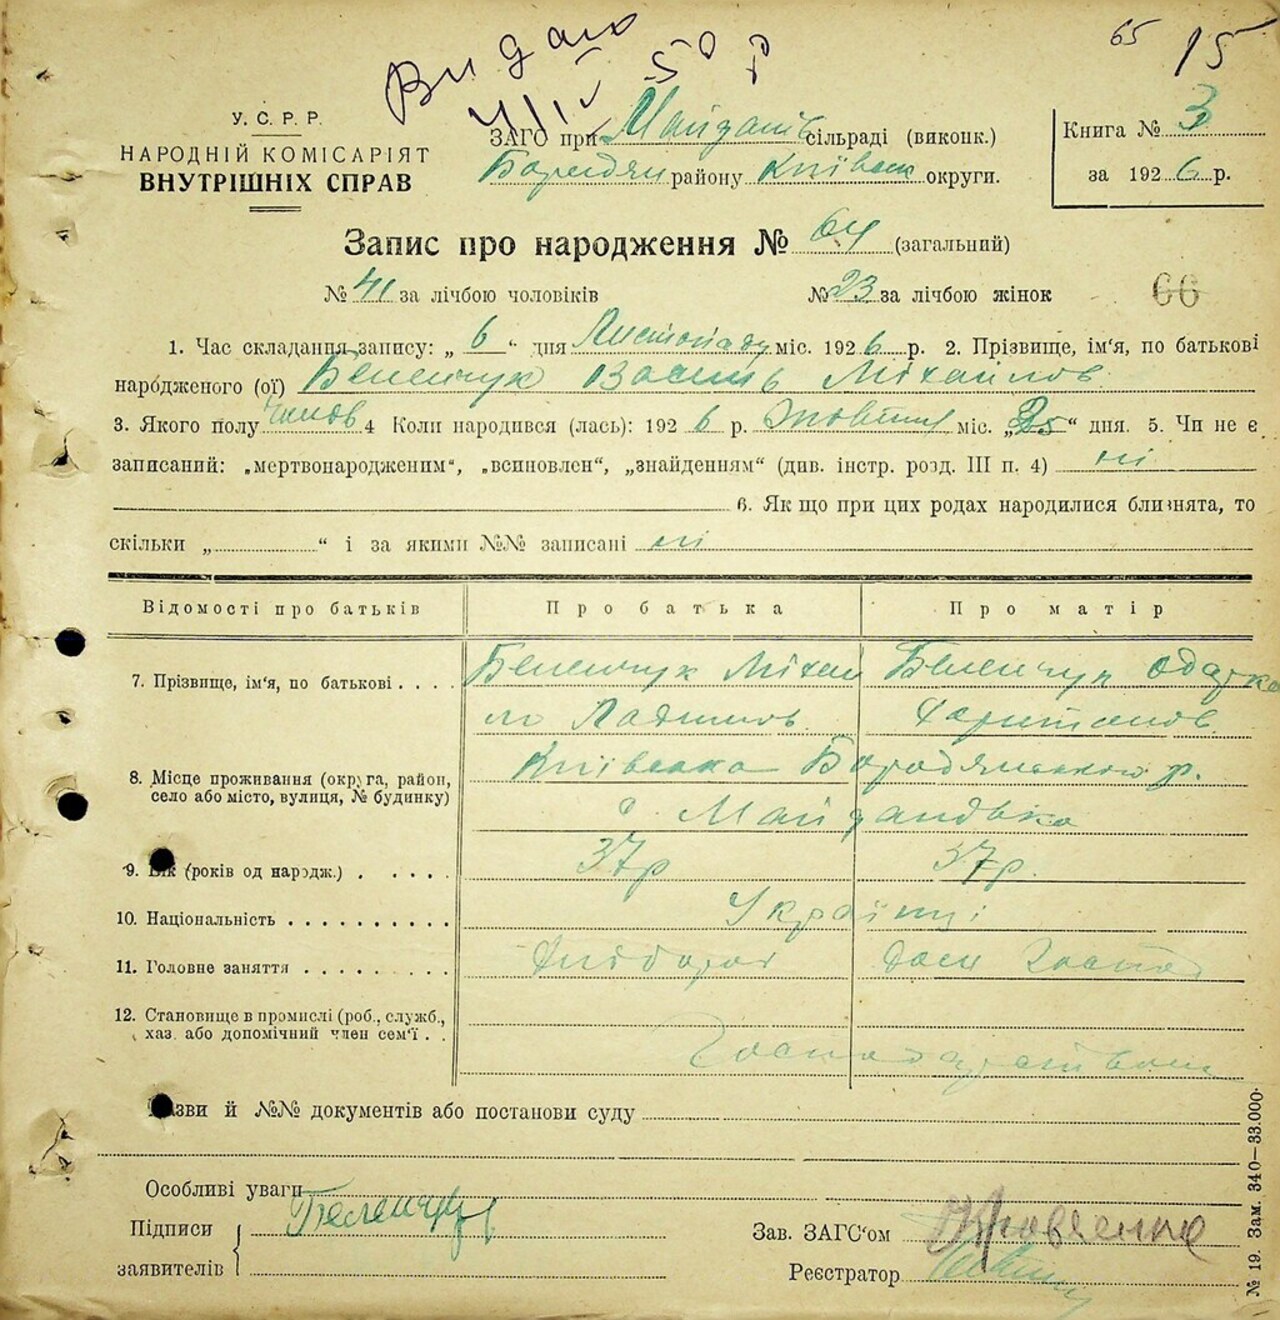 65 15
Видано
4/IV 50 р
У.С.Р.Р.
НАРОДНІЙ КОМІСАРІЯТ
ВНУТРІШНІХ СПРАВ
ЗАГС при Майданів сільраді (виконк.)
Бородян району Київськ округи.
Книга № 3
за 1926 р.
Запис про народження № 64 (загальний)
№ 41 за лічбою чоловіків № 23 за лічбою жінок 66
1. Час складання запису: „ 6 “ дня Листопаду міс. 1926 р. 2. Прізвище, ім'я, по батькові
народженого (ої) Беленчук Василь Міхайлов
3. Якого полу чолов 4 Коли народився (лась): 1926 р. Жовтня міс. „25“ дня. 5. Чи не є
записаний: „мертвонародженим“, „всиновлен“, „знайденням“ (див. інстр. розд. III п. 4) ні
6. Як що при цих родах народилися близнята, то
скільки „ “ і за якими №№ записані ні
Відомості про батьків Про батька Про матір
7. Прізвище, ім'я, по батькові . . . . Беленчук Міхай Беленчук Одарка
ло Харитонов
8. Місце проживання (округа, район, село або місто, вулиця, № будинку) Київська Бородянського р.
с Майданівка
9. Вік (років од народж.) . . . . . 37р 37р.
10. Національність . . . . . . . . . . Українці
11. Головне заняття . . . . . . . . Хлібороб Дом господ
12. Становище в промислі (роб., служб.,
хаз. або допомічний член сем'ї . .
Назви й №№ документів або постанови суду
Особливі уваги
Підписи Беленчук
заявителів
Зав. ЗАГС'ом
Реєстратор
№ 19. Зам. 340—33.000.